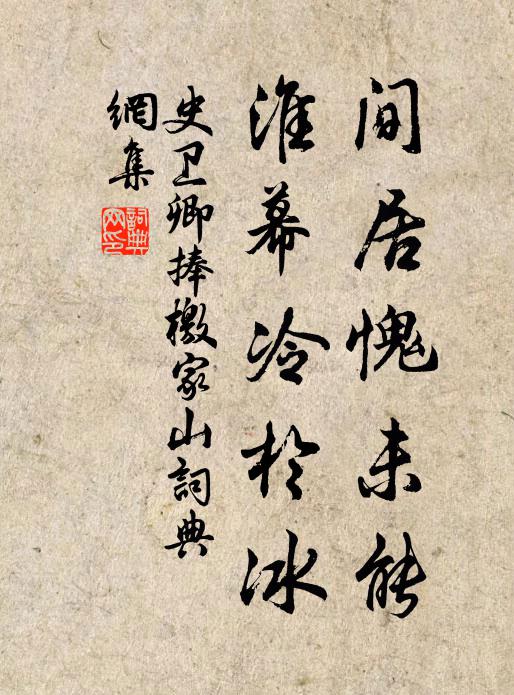 间居愧未能
淮幕冷於冰
史卫卿捧檄家山詞典
網集
詞典
网印